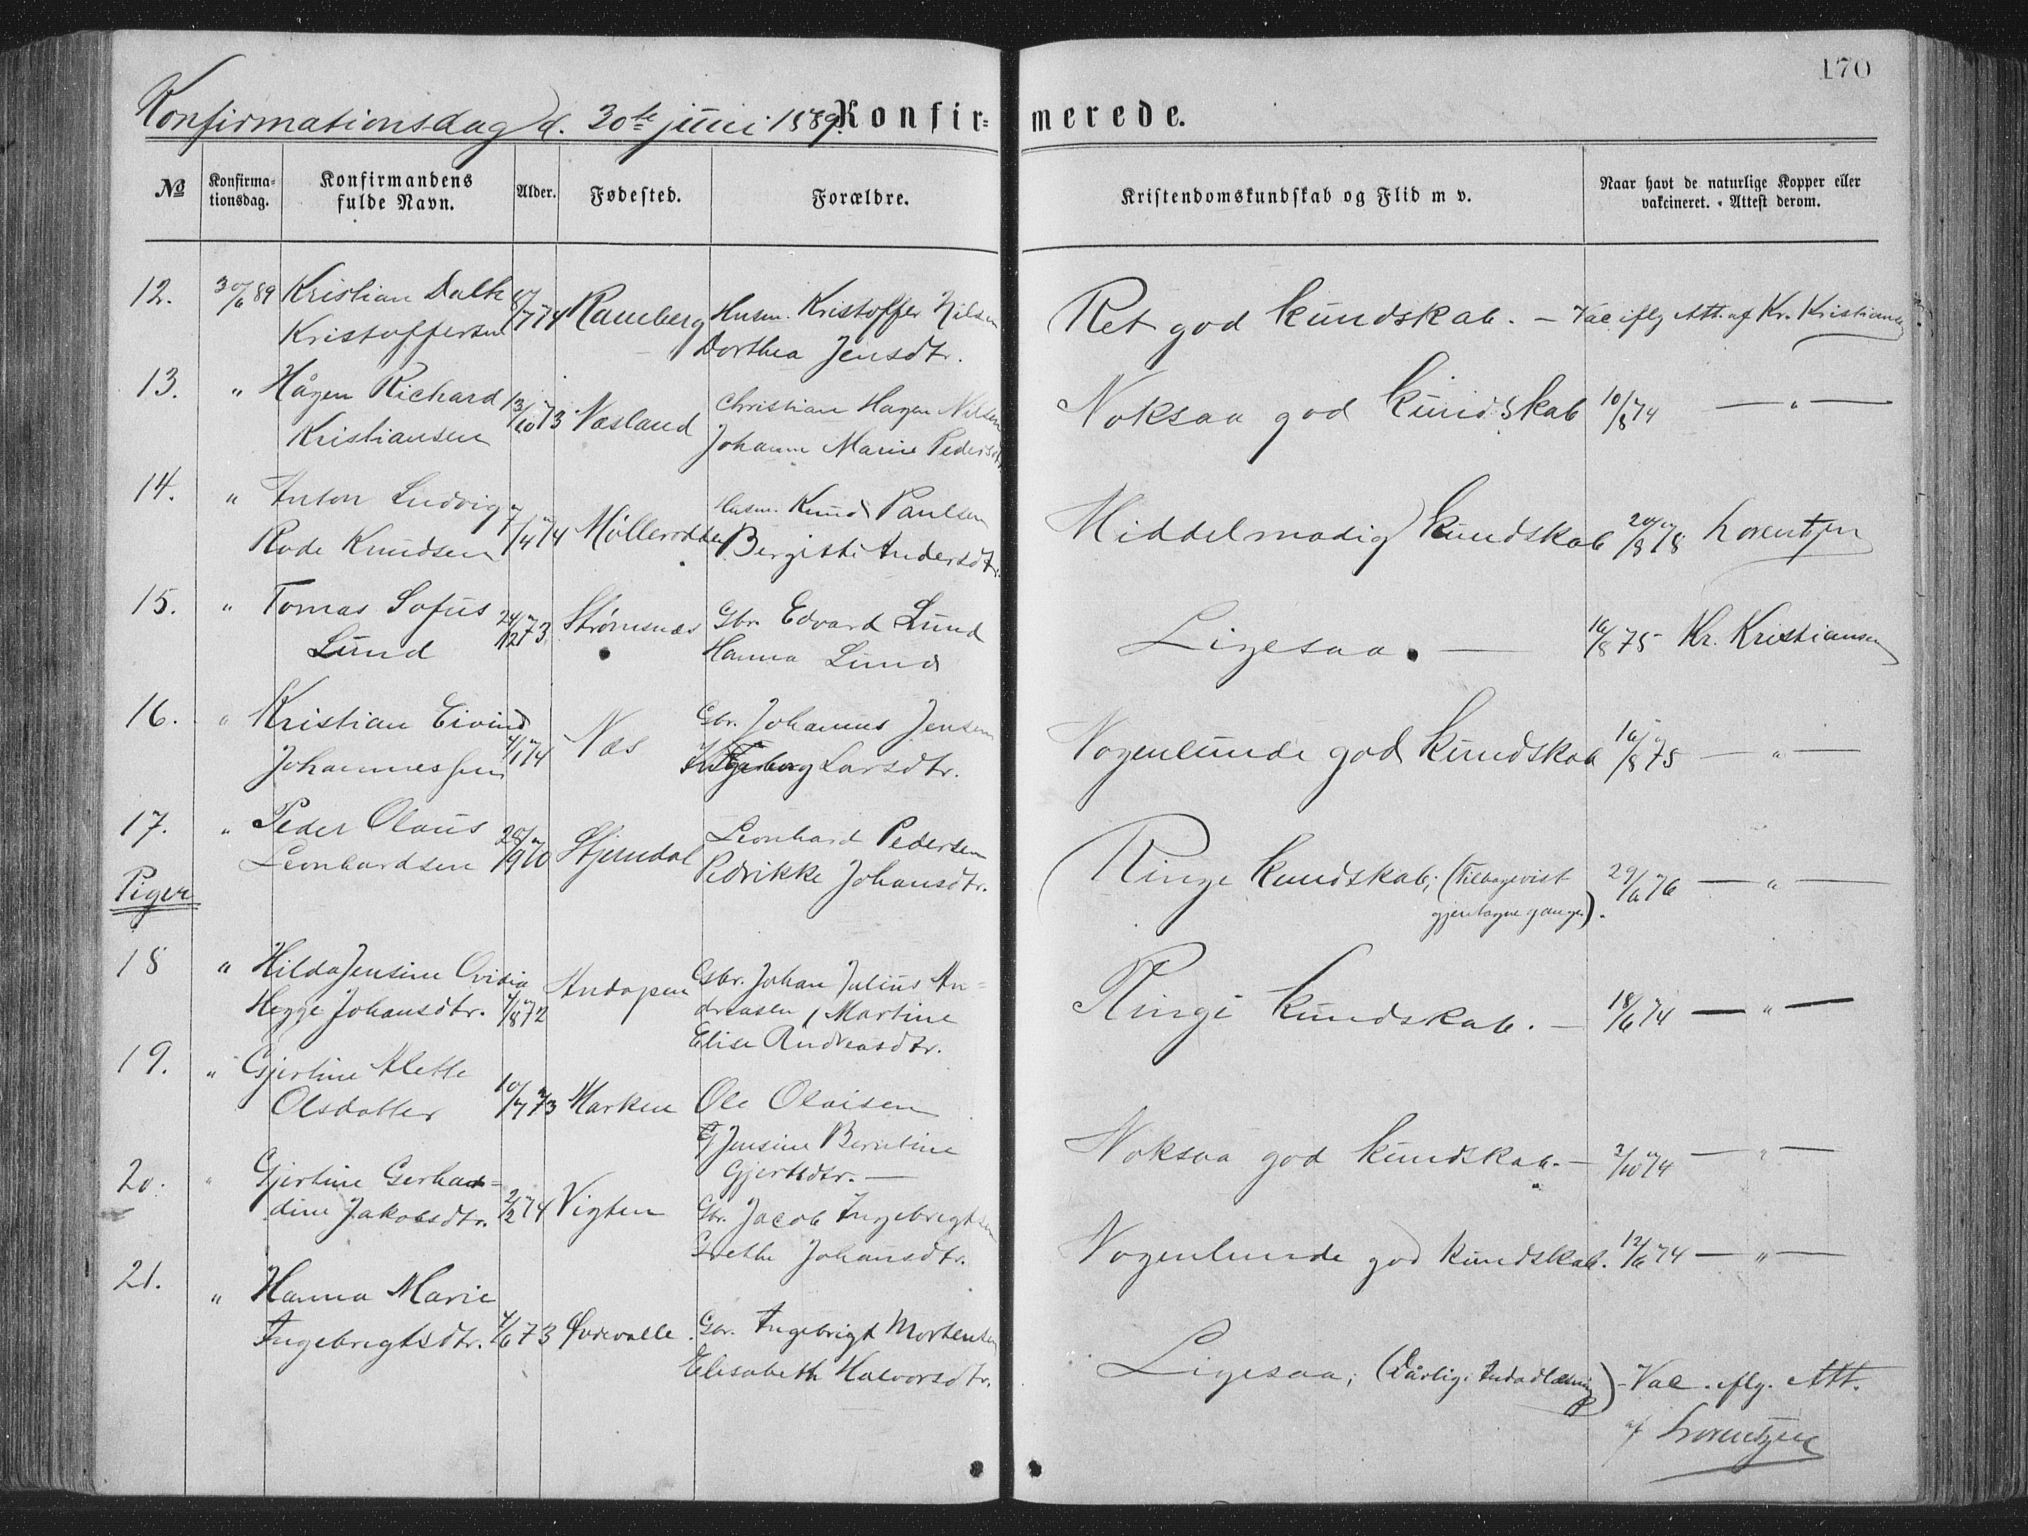 170
Konfirmationsdag d. 30te juni 1889. Konfir= merede.
No Konfirma= tionsdag. Konfirmandens fulde Navn. Alder. Fødested. Forældre. Kristendomskundskab og Flid m v. Naar havt de naturlige Kopper eller vakcineret. Attest derom.
12. 30/6 89 Kristian Dalk 8/7 74 Ramberg Husm. Kristoffer Nilsen Ret god kundskab. — Vac iflg Att. af Kr. Kristiansen
Kristoffersen Dorthea Jensdtr.
13. " Hågen Richard 13/10 73 Næsland Christian Hagen Nilsen Noksaa god kundskab 10/8 74 — " —
Kristiansen Johanne Marie Pedersdtr
14. " Anton Ludvig 7/4 74 Møllerodden Husm. Knud Paulsen Middelmadig kundskab 20/8 78 Lorentzen
Rode Knudsen Bergitte Andersdtr.
15. " Tomas Sofus 24/12 73 Strømsnæs Gbr. Edvard Lund Ligesaa. — 16/8 75 Kr. Kristiansen
Lund Hanna Lund
16. " Kristian Eivind /1 74 Næs Gbr. Johannes Jensen Nogenlunde god kundskab 16/8 75 — " —
Johannessen Ingeborg Larsdtr.
17. " Peder Olaus 20/9 70 Stjerndal Leonhard Pedersen Ringe kundskab; (Tilbagevist 29/6 76 — " —
Leonhardsen Pedrikke Johansdtr. gjentagne gange).
Piger
18 " Hilda Jensine Ovidia 4/8 72 Andopen Gbr. Johan Julius An= Ringe kundskab. — 18/6 74 — " —
Hegge Johansdtr. dreasen, Martine
Elise Andreasdtr.
19. " Gjertine Alette 10/7 73 Marken Ole Olaisen Noksaa god kundskab. — 3/10 74 — " —
Olsdatter Jensine Berntine
Gjertsdtr. —
20. " Gjertine Gerhar= 2/2 74 Vigten Gbr. Jacob Ingebrigtsen Nogenlunde god kundskab. 12/6 74 — " —
dine Jakobsdtr. Grethe Johansdtr.
21. " Hanna Marie 4/6 73 Yttrevolle Gbr. Ingebrigt Mortensen Ligesaa; (Dårlig Indadlæsning) — Vac. iflg. Att.
Ingebrigtsdtr. Elisabeth Halvorsdtr. af Lorentzen